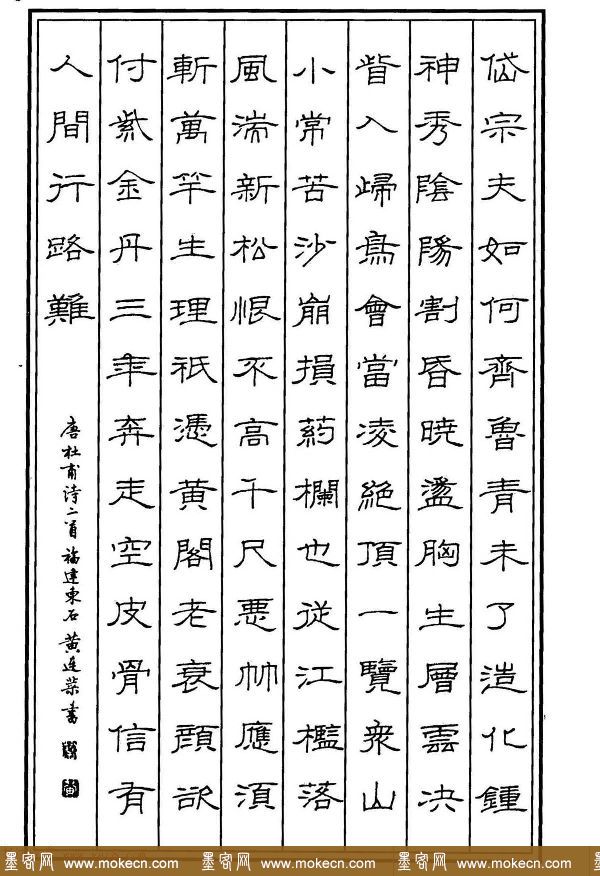 岱宗夫如何齊魯青未了造化鍾
神秀陰陽割昏曉盪胸生層雲决
眥入歸鳥會當凌絕頂一覽衆山
小常苦沙崩損葯欄也從江檻落
風湍新松恨不高千尺惡竹應須
斬萬竿生理祇憑黃閣老衰顏欲
付紫金丹三年奔走空皮骨信有
人間行路難
唐杜甫诗二首 福建東石黄连荣書
墨客网 www.mokecn.com 墨客网 www.mokecn.com 墨客网 www.mokecn.com